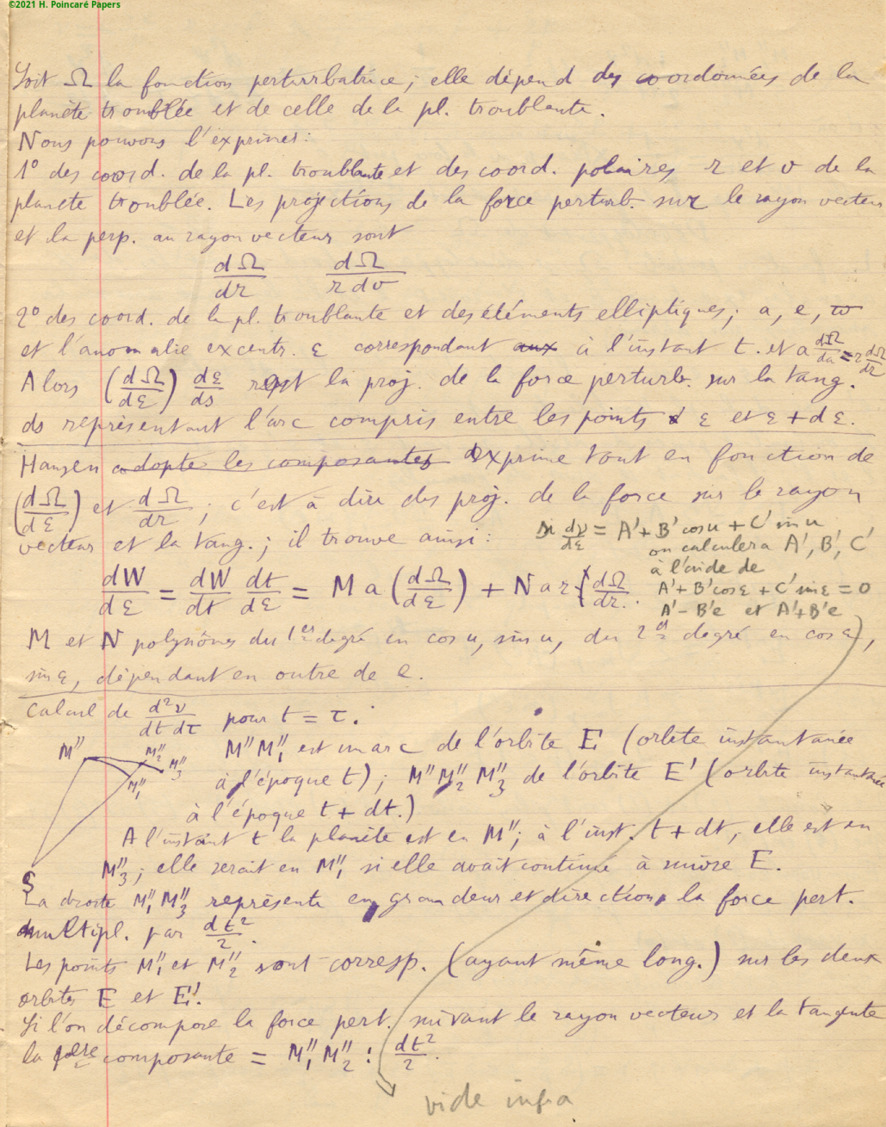 ©2021 H. Poincaré Papers
Soit Ω la fonction perturbatrice ; elle dépend des coordonnées de la
planète troublée et de celle de la pl. troublante.
Nous pouvons l'exprimer :
1° des coord. de la pl. troublante et des coord. polaires r et v de la
planète troublée. Les projections de la force perturb. sur le rayon vecteur
et la perp. au rayon vecteur sont
dΩ/dr dΩ/r dv
2° des coord. de la pl. troublante et des éléments elliptiques ; a, e, ϖ
et l'anomalie excentr. ε correspondant aux à l'instant t. et a dΩ/da = r dΩ/dr
Alors (dΩ/dε) dε/ds est la proj. de la force perturb. sur la tang.
ds représentant l'arc compris entre les points ε et ε + dε.
Hansen adopte les composantes exprime tout en fonction de
(dΩ/dε) et dΩ/dr ; c'est à dire des proj. de la force sur le rayon
vecteur et la tang. ; il trouve ainsi :
si dν/dε = A' + B' cos u + C' sin u
on calculera A', B', C'
à l'aide de
A' + B' cos ε + C' sin ε = 0
A' - B'e et A' + B'e
dW/dε = dW/dt dt/dε = M a (dΩ/dε) + N a r (dΩ/dr.
M et N polynômes du 1er degré en cos u, sin u, du 2d degré en cos ε,
sin ε, dépendant en outre de e.
Calcul de d²ν/dt dτ pour t = τ.
M'' M''2 M''3 M''1 S
M'' M''1 est un arc de l'orbite E (orbite instantanée
à l'époque t) ; M'' M''2 M''3 de l'orbite E' (orbite instantanée
à l'époque t + dt.)
A l'instant t la planète est en M'' ; à l'inst. t + dt, elle est en
M''3 ; elle serait en M''1 si elle avait continué à suivre E.
La droite M''1 M''3 représente en grandeur et direction, la force pert.
multipl. par dt²/2.
Les points M''1 et M''2 sont corresp. (ayant même long.) sur les deux
orbites E et E'.
Si l'on décompose la force pert. suivant le rayon vecteur et la tangente
la 1ère composante = M''1 M''2 : dt²/2.
vide infra